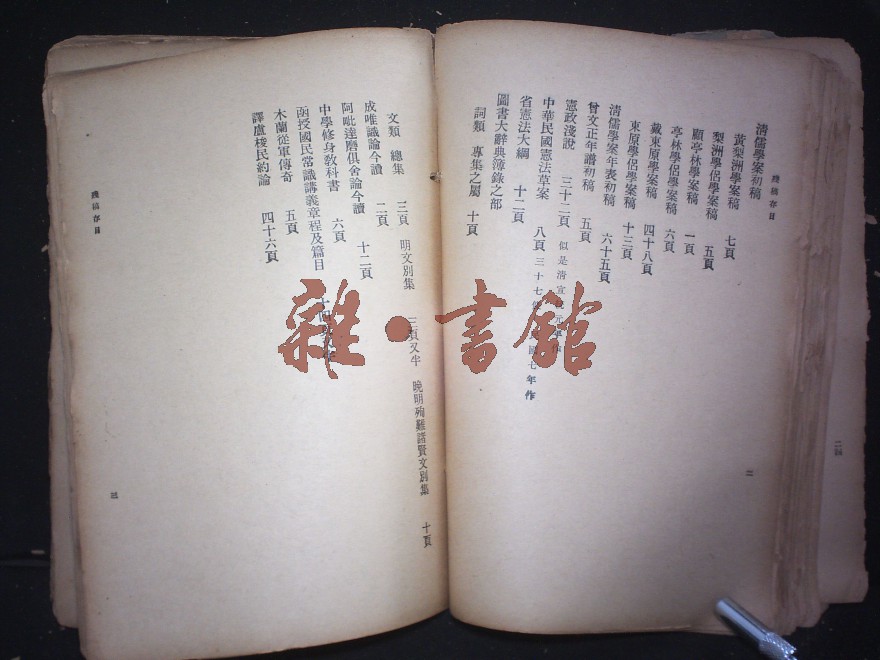 殘稿存目
清儒學案初稿
黃梨洲學案稿 七頁
梨洲學侶學案稿 五頁
顧亭林學案稿 一頁
亭林學侶學案稿 六頁
戴東原學案稿 四十八頁
東原學侶學案稿 十三頁
清儒學案年表初稿 六十五頁
曾文正年譜初稿 五頁
憲政淺說 三十二頁 似是清宣 元
中華民國憲法草案 八頁 三十七 國七年作
省憲法大綱 十二頁
圖書大辭典簿錄之部
詞類 專集之屬 十頁
二
二四
文類 總集 三頁 明文別集 三頁又半 晚明殉難諸賢文別集 十頁
成唯識論今讀 二頁
阿毗達磨俱舍論今讀 十二頁
中學修身教科書 六頁
函授國民常識講義章程及篇目 十四
木蘭從軍傳奇 五頁
譯盧梭民約論 四十六頁
殘稿存目
三
雜·書館